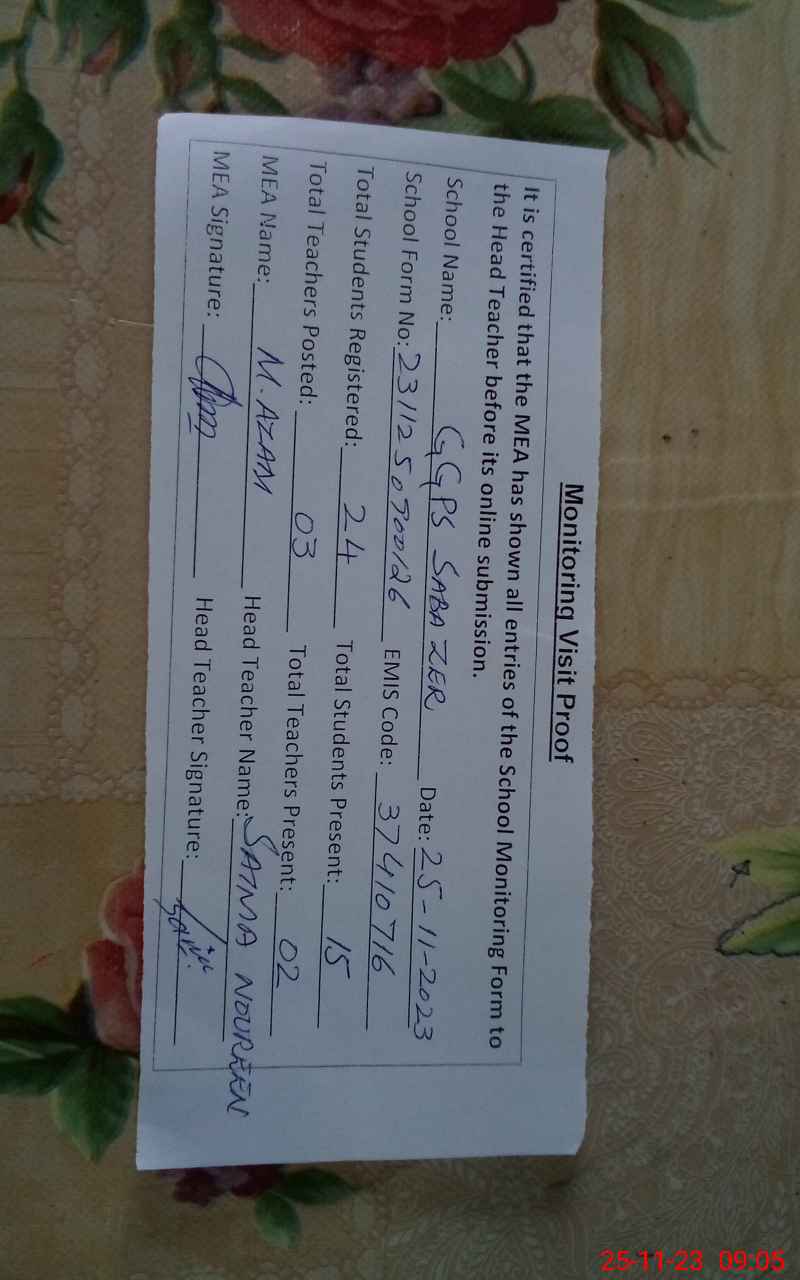 Monitoring Visit Proof
It is certified that the MEA has shown all entries of the School Monitoring Form to
the Head Teacher before its online submission.
School Name: GGPS SABA ZER Date: 25-11-2023
School Form No: 2311250700126 EMIS Code: 37410716
Total Students Registered: 24 Total Students Present: 15
Total Teachers Posted: 03 Total Teachers Present: 02
MEA Name: M. AZAM Head Teacher Name: SAIMA NOUREEN
MEA Signature: Head Teacher Signature:
25-11-23 09:05